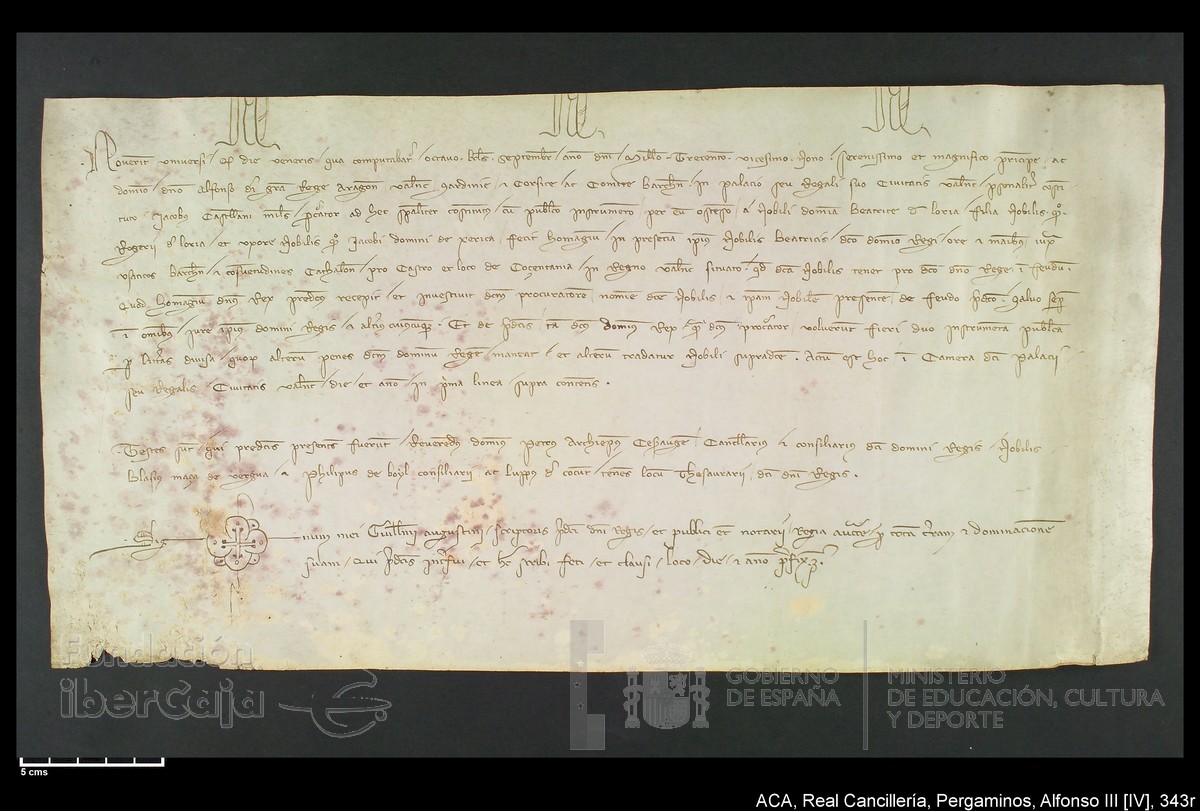 Noverint universi q die veneris qua computabatr octavo kls septembr anno dni Millo Trecento vicesimo Nono serenissimo et magnifico principe ac
domino dno Alfonso di gra Rege Aragon valnc Sardinie et Corsice ac Comite Barchn in palacio seu Regali suo Civitatis valnc psonalitr consti
tuto Jacobus Castellani miles pcurator ad hec spaliter constitutus cu publico instrumento per eu ostenso a Nobili domina Beatrice d loria filia Nobilis qo
Rogerii d loria et uxore Nobilis qo Jacobi domini de xerica fecit homagiu in presencia ipius Nobilis Beatricis dco domino Regi ore et manibus iuxta
usancos Barchn et cosuetudines Cathalon pro Castro et loco de Cocentania in Regno valnc situato qd dca Nobilis tenet pro dco dno Rege i feudum
Quod homagiu dnus Rex predcus recepit et investivit dcm procuratore nomine dce Nobilis et ipam Nobile presente de feudo pdco salvo semp
i omibus iure ipius domini Regis et alterius cuiuscumque Et de pdcis ta dcus dominus Rex qm dcus procurator voluerunt fieri duo instrumenta publica
p litras divisa quorum alteru penes dcm dominu Rege maneat et alterum tradatur Nobili supradce Actu est hoc i Camera dci palacii
seu Regalis Civitatis valnc die et anno in prima linea supra contentis
Testes sut qui predcis presentes fuerunt Reverendus dominus Petrus Archiepus Cesrauge Cancellarius et consiliarius dci domini Regis Nobilis
Blasius maça de vergua et Philipus de boyl consiliarii ac Luppus d cocut tenens locu Thesaurarii dci dni Regis
Sig num mei Guillmi augustini scriptoris pdci dni Regis et publici et notarii Regia auctte p totam terram et dominacionem
suam qui pdcis interfui et hec scribi feci et clausi loco die et anno prefixis
Fundación
iberCaja
GOBIERNO
DE ESPAÑA
MINISTERIO
DE EDUCACIÓN, CULTURA
Y DEPORTE
5 cms
ACA, Real Cancillería, Pergaminos, Alfonso III [IV], 343r